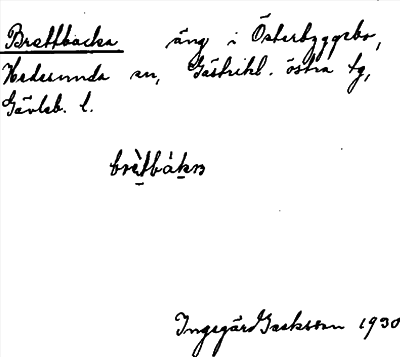 Brettbacka äng i Österbyggebo,
Hedesunda sn, Gästrikl. östra tg,
Gävleb. l.
brètbàkɐ
Ingegärd Isaksson 1930